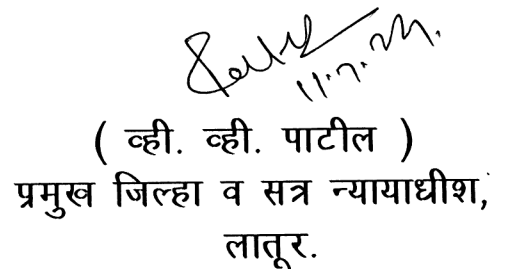 ( व्ही. व्ही. पाटील )
प्रमुख जिल्हा व सत्र न्यायाधीश,
लातूर.